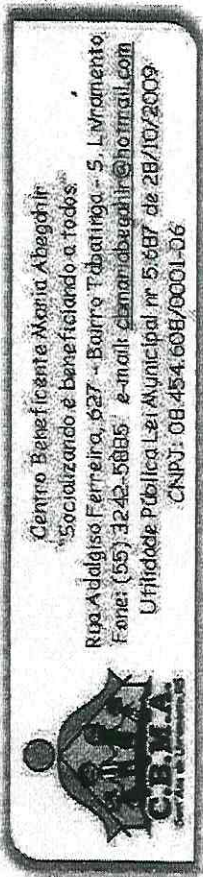 Centro Beneficente Maria Abegahir
"Socializando e beneficiando a todos"
Rua Adalgisa Ferreira, 627 - Bairro Tabatinga - S. Livramento
Fone: (55) 3242-5885 e-mail: cbmariabegahir@hotmail.com
Utilidade Pública Lei Municipal nº 5.687 de 28/10/2009
CNPJ: 08.454.608/0001-06
C.B.M.A